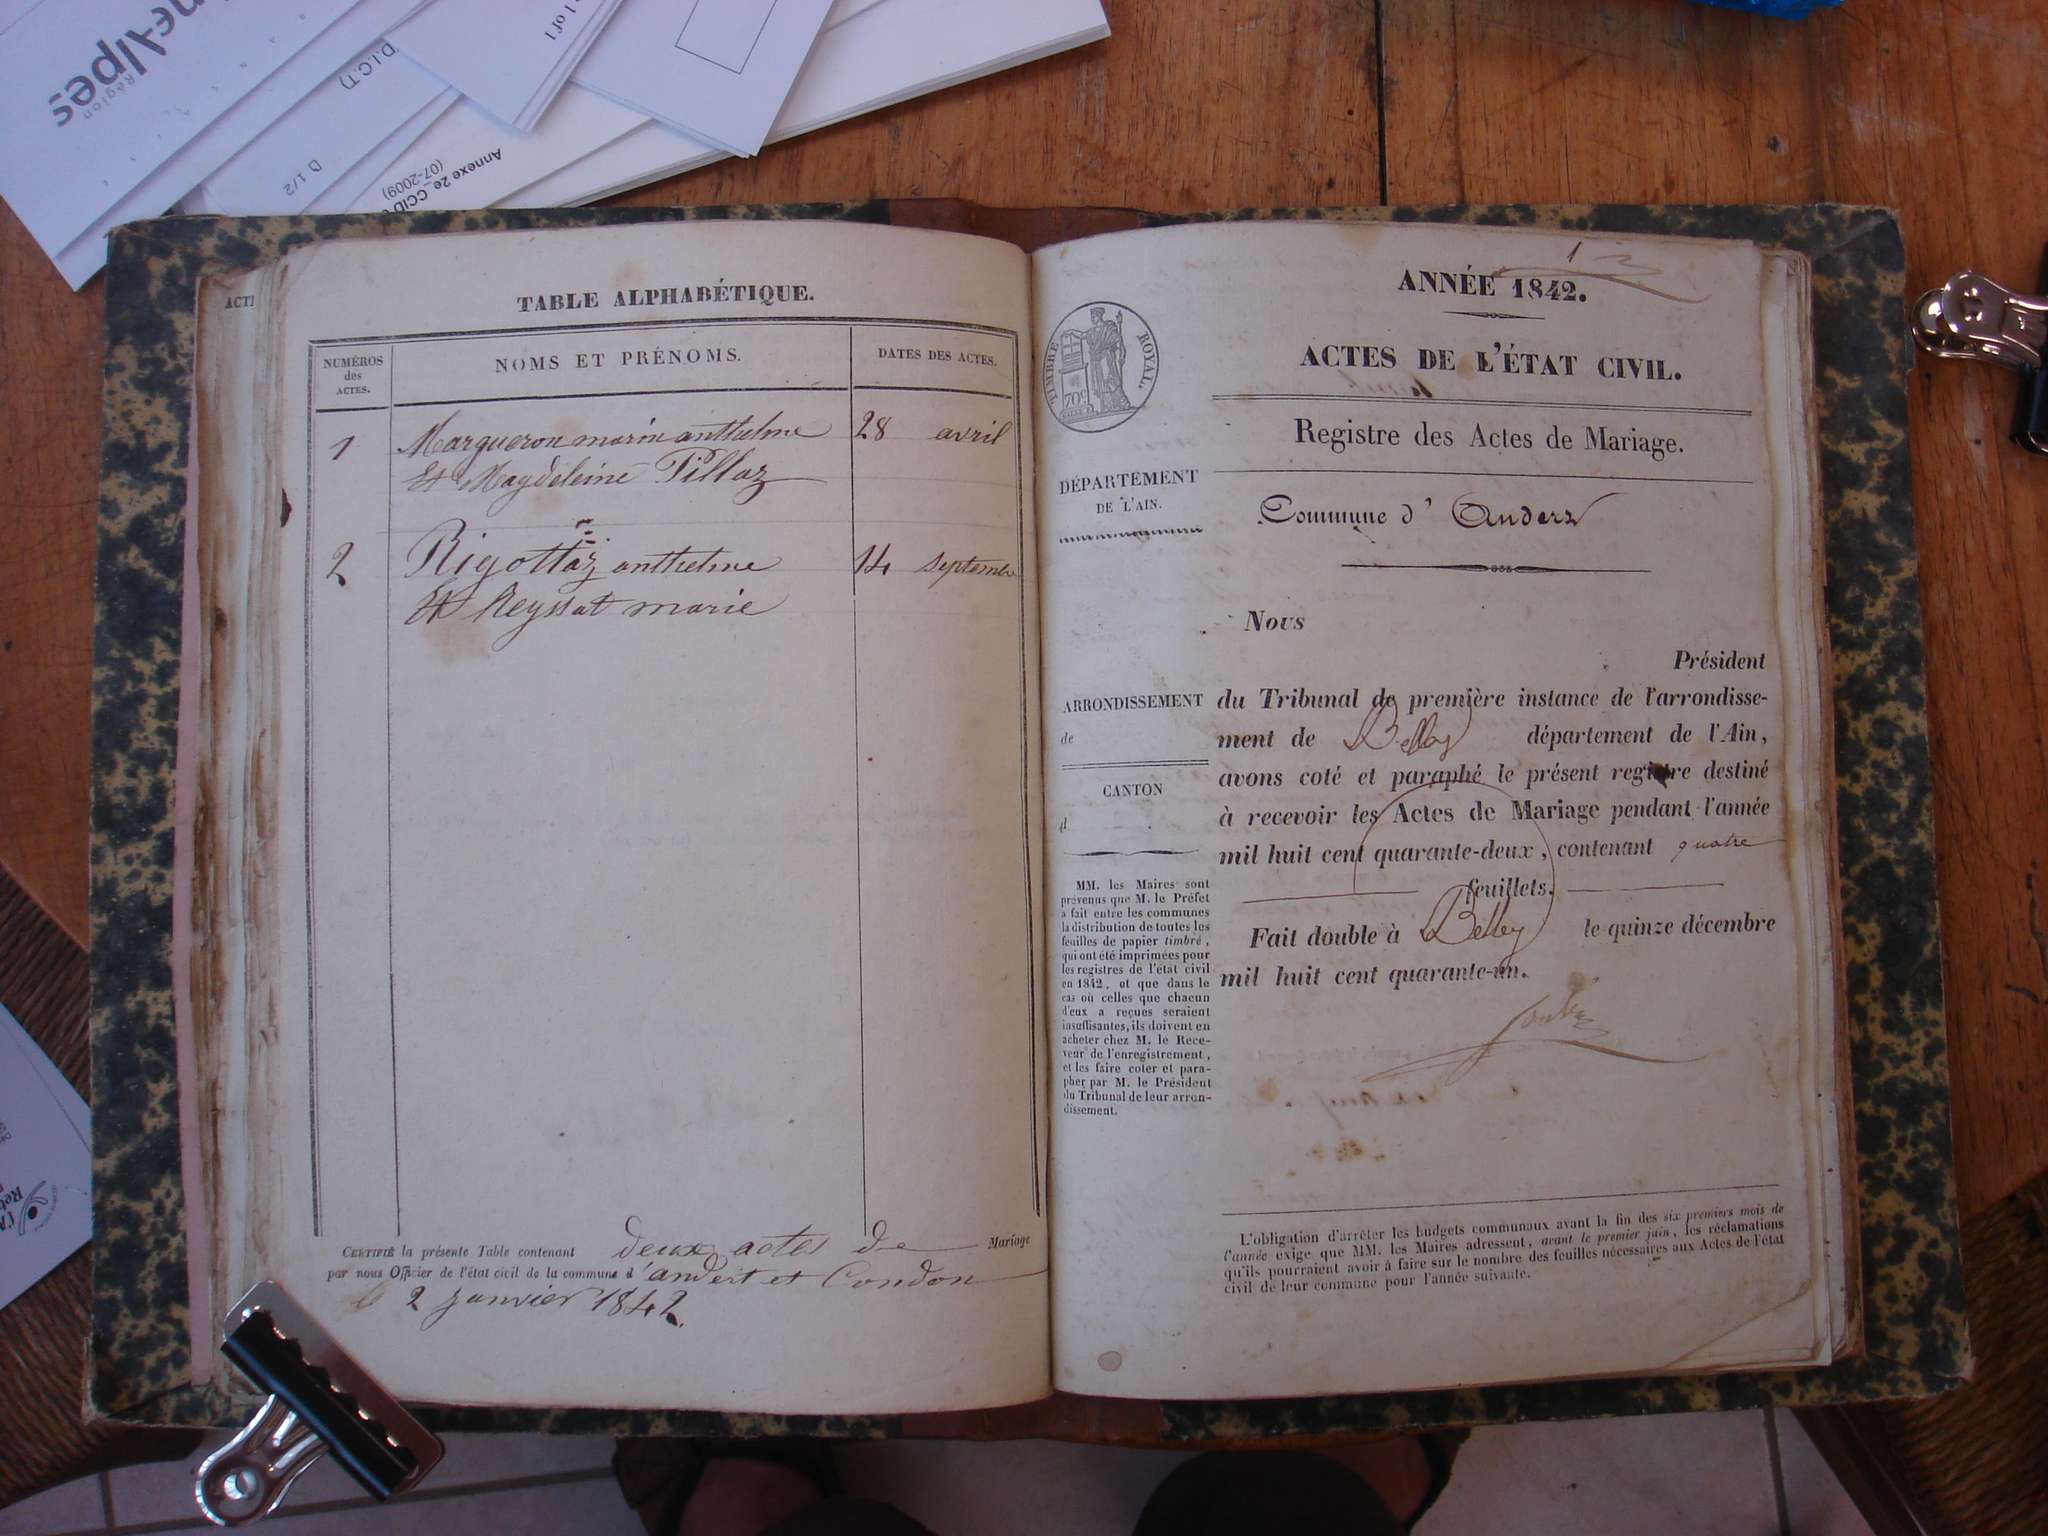 Région
D.I.C.T)
1 of 1
D 1/2
Annexe 2e_CCID
(07-2009)
ACTI
TABLE ALPHABÉTIQUE.
NUMÉROS
des
ACTES.
NOMS ET PRÉNOMS.
DATES DES ACTES.
1 Margueron marin anthelme 28 avril
Et Magdeleine Pillaz
2 Rigottaz anthelme 14 septembre
Et Reyssat marie
CERTIFIÉ la présente Table contenant deux actes de Mariage
par nous Officier de l'état civil de la commune d'andert et Condon
le 2 janvier 1842.
1
ANNÉE 1842.
TIMBRE ROYAL.
70c
ACTES DE L'ÉTAT CIVIL.
Registre des Actes de Mariage.
DÉPARTEMENT
DE L'AIN.
Commune d'
Nous
Président
du Tribunal de première instance de l'arrondisse-
ment de Belley département de l'Ain,
avons coté et paraphé le présent registre destiné
à recevoir les Actes de Mariage pendant l'année
mil huit cent quarante-deux, contenant quatre
feuillets.
Fait double à Belley le quinze décembre
mil huit cent quarante-un.
ARRONDISSEMENT
de
CANTON
d
MM. les Maires sont
prévenus que M. le Préfet
a fait entre les communes
la distribution de toutes les
feuilles de papier timbré,
qui ont été imprimées pour
les registres de l'état civil
en 1842, et que dans le
cas où celles que chacun
d'eux a reçues seraient
insuffisantes, ils doivent en
acheter chez M. le Rece-
veur de l'enregistrement,
et les faire coter et para-
pher par M. le Président
du Tribunal de leur arron-
dissement.
L'obligation d'arrêter les budgets communaux avant la fin des six premiers mois de
l'année exige que MM. les Maires adressent, avant le premier juin, les réclamations
qu'ils pourraient avoir à faire sur le nombre des feuilles nécessaires aux Actes de l'état
civil de leur commune pour l'année suivante.